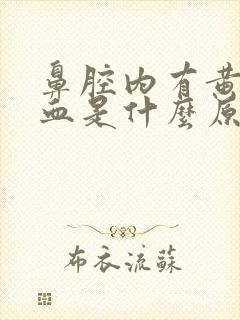 鼻腔内有黄
血是什麼原
布衣流蘇